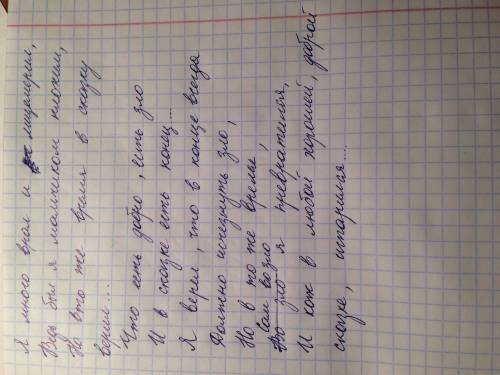 Я много врал и лицемерил,
Ведь был я мальчиком плохим,
Но в то же время в сказку
верил...
Что есть добро, есть зло
И в сказке есть конец...
Я верил, что в конце всегда
Должно исчезнуть зло,
Но в то же время,
Сам во зло
Во зло я превратился,
И как в любой хорошей, доброй
сказке, испарился...